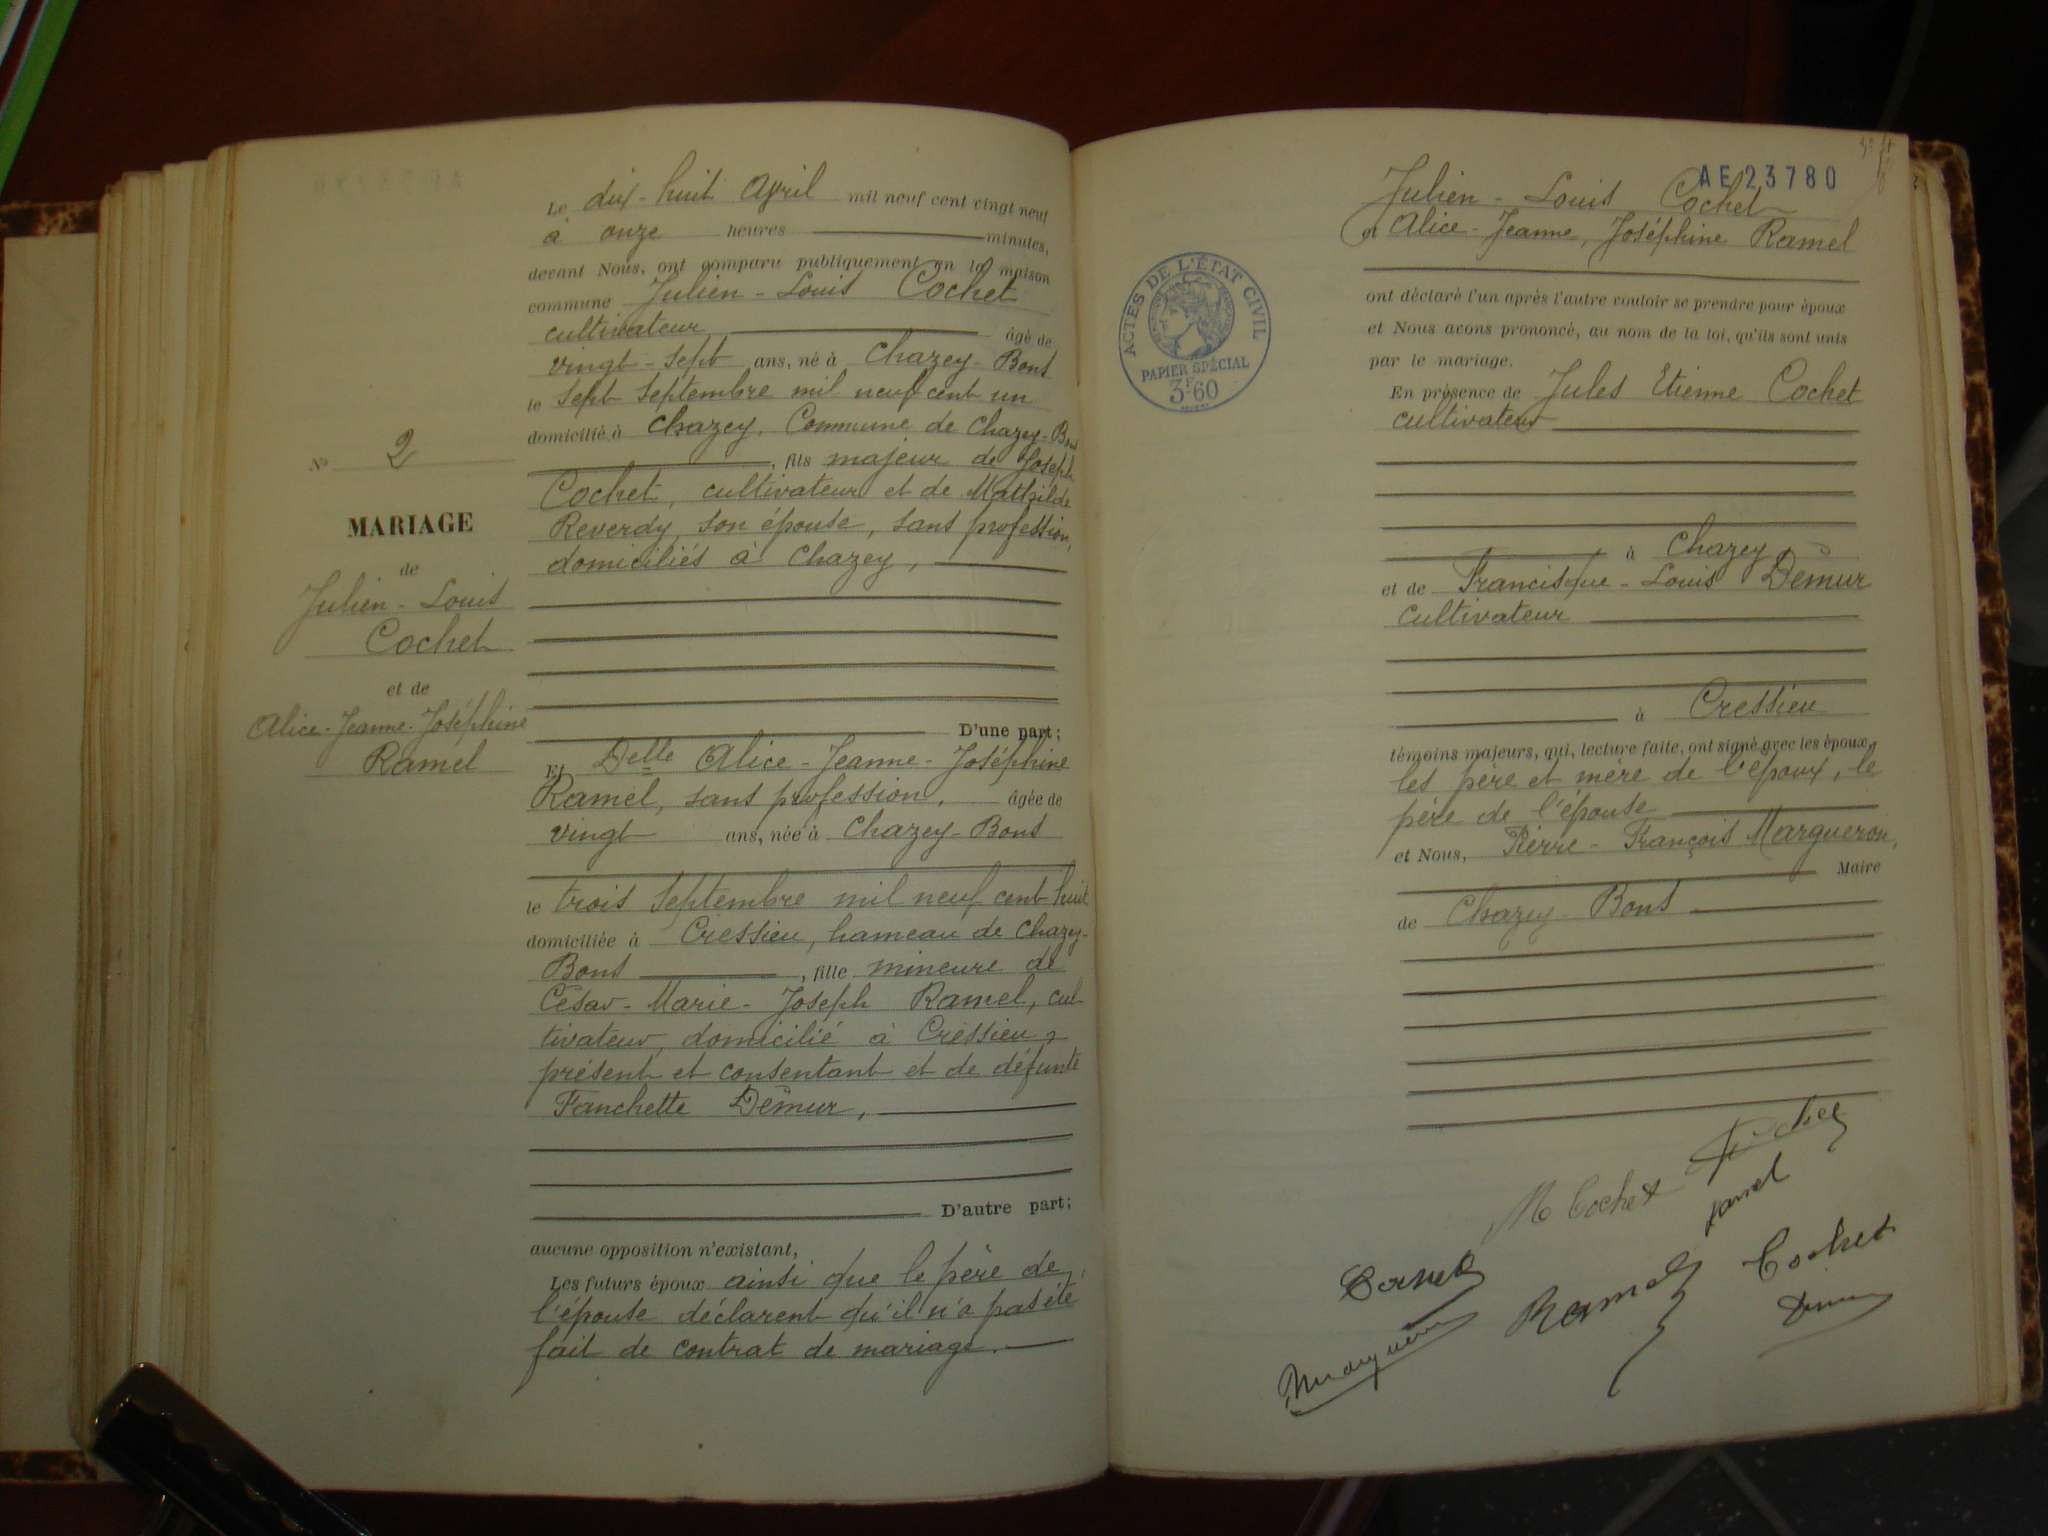 No 2
MARIAGE
de
Julien - Louis
Cochet
et de
Alice - Jeanne - Joséphine
Ramel
Le dix-huit Avril mil neuf cent vingt neuf
à onze heures minutes,
devant Nous, ont comparu publiquement en la maison
commune Julien - Louis Cochet
cultivateur âgé de
vingt-sept ans, né à Chazey-Bons
le sept Septembre mil neuf cent un
domicilié à Chazey, Commune de Chazey-Bons
, fils majeur de Joseph
Cochet, cultivateur et de Mathilde
Reverdy, son épouse, sans profession,
domiciliés à Chazey,
D'une part;
Et Delle Alice - Jeanne - Joséphine
Ramel, sans profession, âgée de
vingt ans, née à Chazey-Bons
le trois Septembre mil neuf cent huit
domiciliée à Cressieu, hameau de Chazey-
Bons , fille mineure de
César - Marie - Joseph Ramel, cul-
tivateur, domicilié à Cressieu,
présent et consentant et de défunte
Fanchette Démur,
D'autre part;
aucune opposition n'existant,
Les futurs époux ainsi que le père de
l'épouse déclarent qu'il n'a pas été
fait de contrat de mariage.
AE 23780
Julien - Louis Cochet
et Alice - Jeanne, Joséphine Ramel
ACTES DE L'ÉTAT CIVIL
PAPIER SPÉCIAL
3F60
ont déclaré l'un après l'autre vouloir se prendre pour époux
et Nous avons prononcé, au nom de la loi, qu'ils sont unis
par le mariage.
En présence de Jules Etienne Cochet
cultivateur
à Chazey
et de Francisque - Louis Démur
cultivateur
à Cressieu
témoins majeurs, qui, lecture faite, ont signé avec les époux,
les père et mère de l'époux, le
père de l'épouse
et Nous, Pierre - François Margueron,
Maire
de Chazey-Bons
Cochet
M Cochet
Ramel
Cochet
Ramel
Cochet
Démur
Margueron